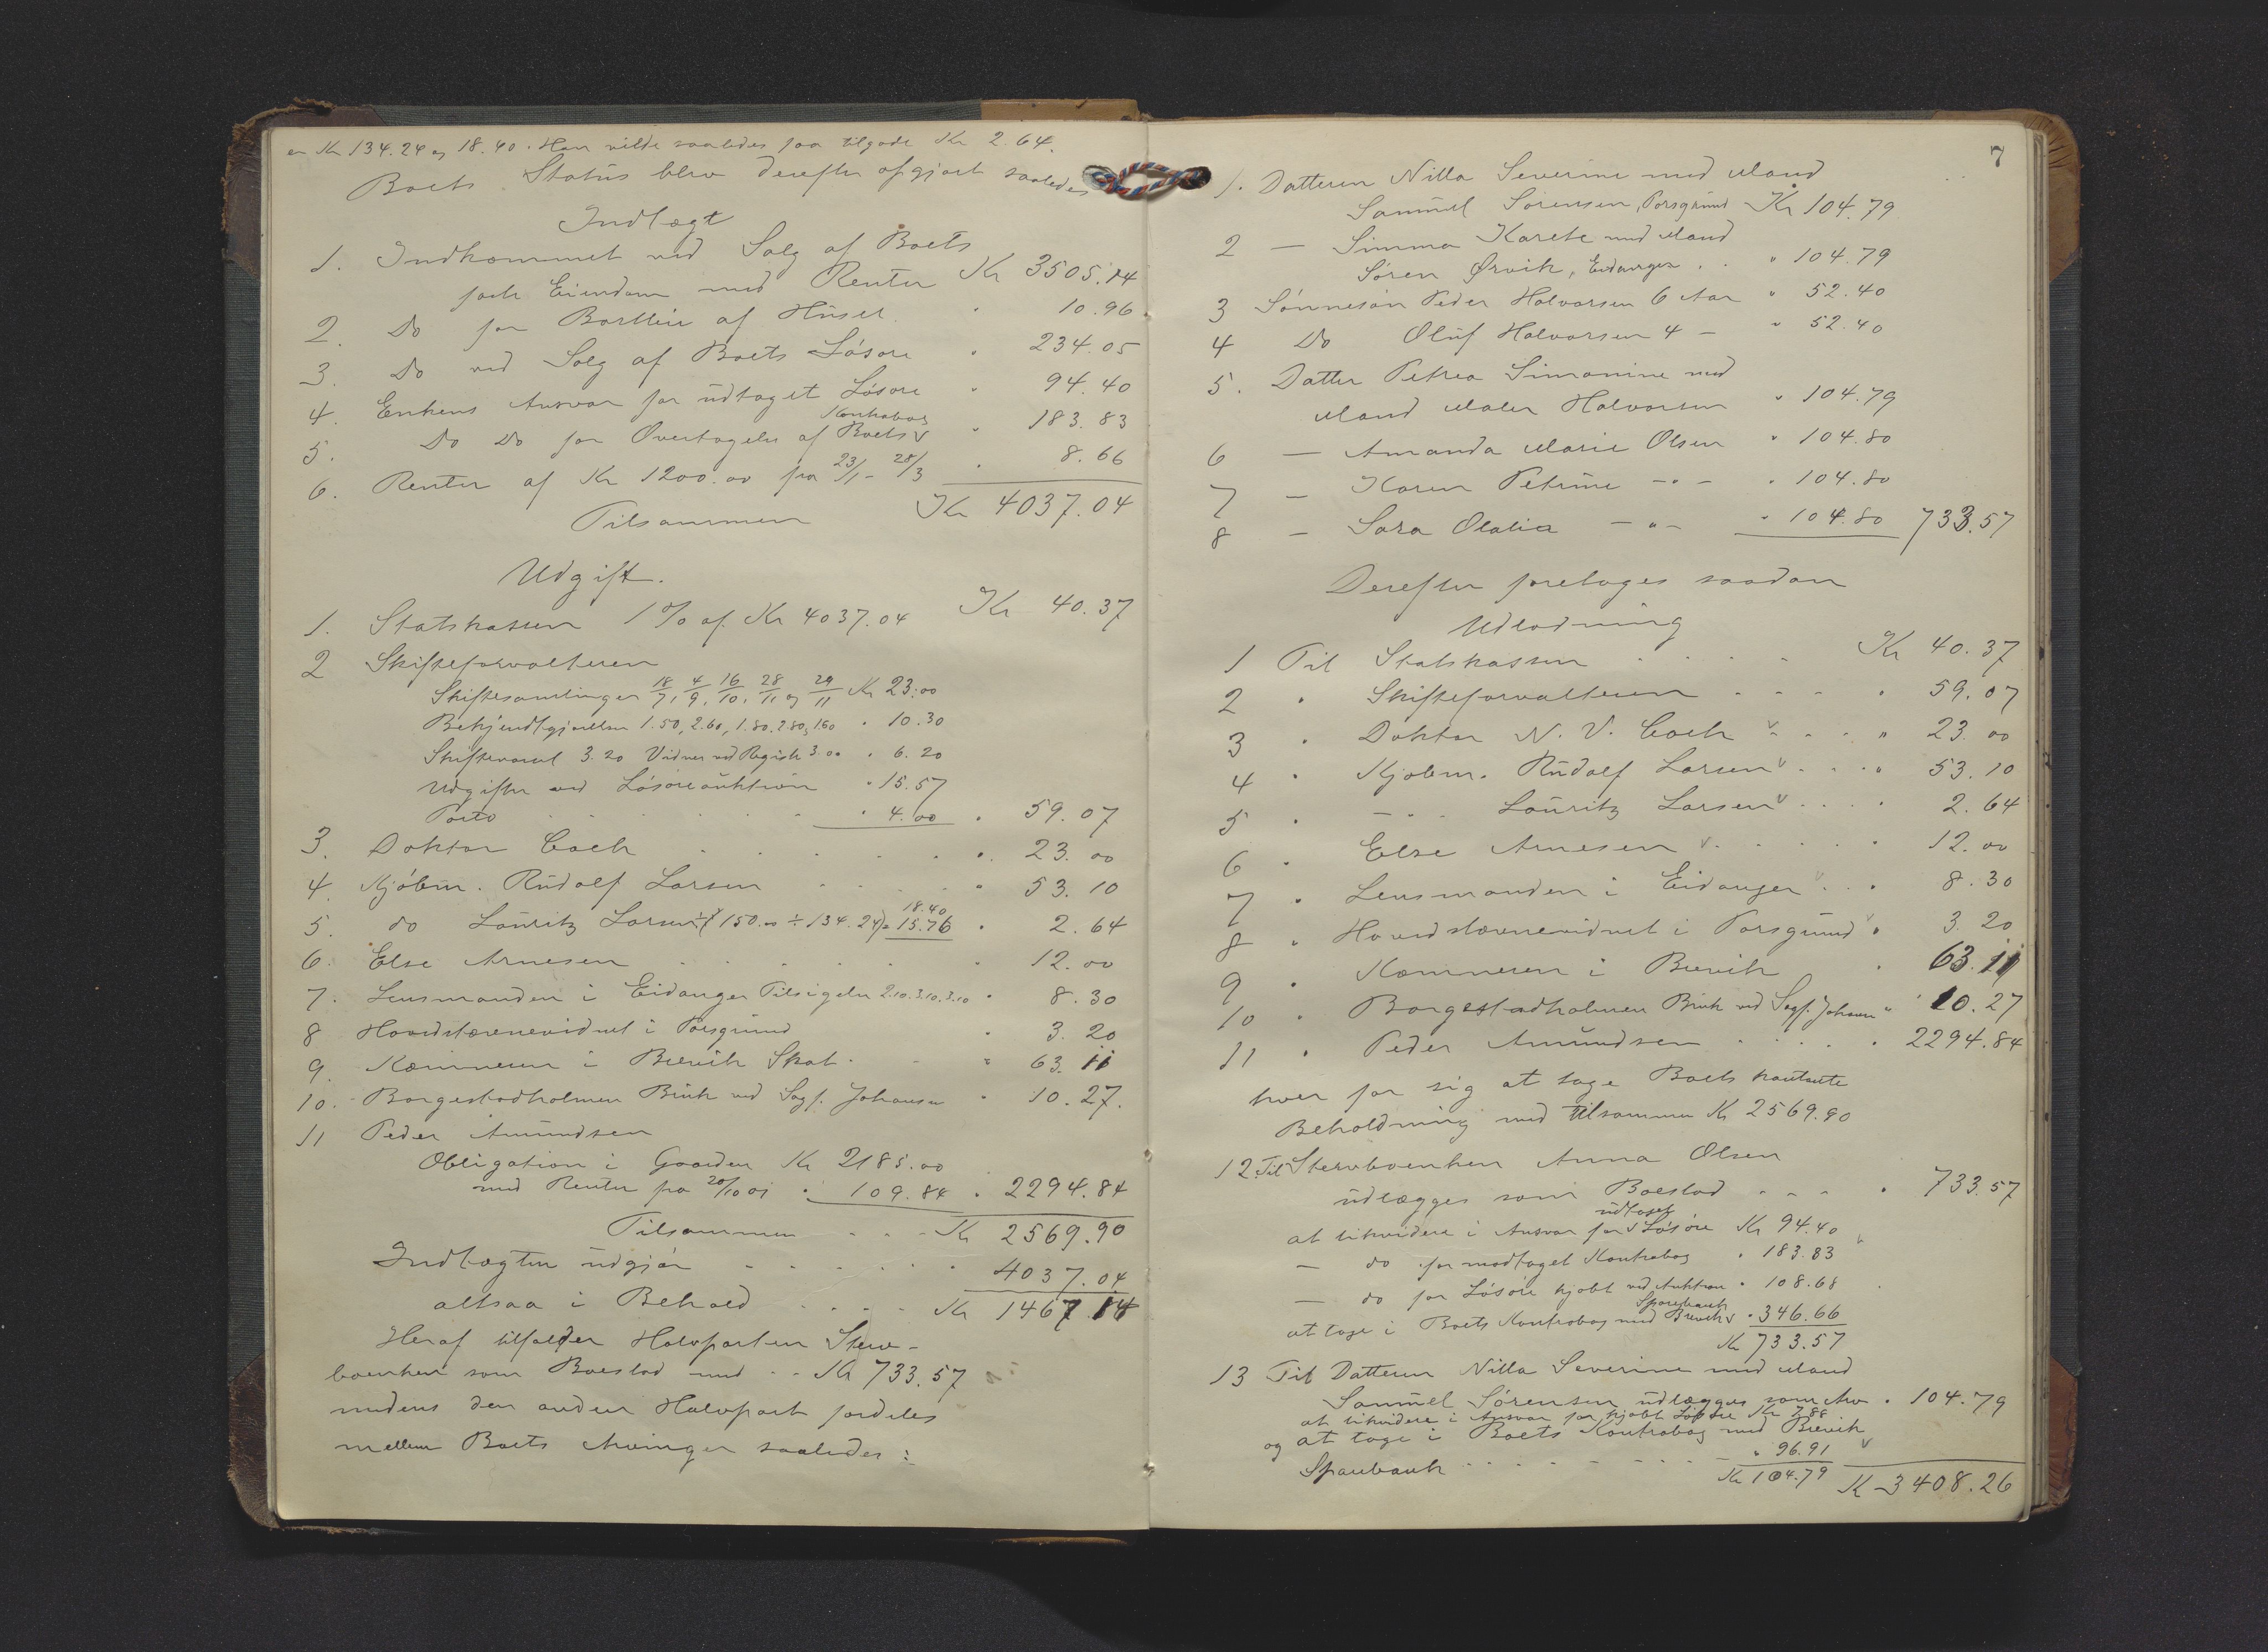 er Kr 134.24 og 18.40. Han vilde saaledes faa tilgode Kr 2.64.
Boets Status blev derefter opgjort saaledes
Indtægt
1. Indkommet ved Salg af Boets
faste Eiendom med Renter Kr 3505.14
2. Do for Bortleie af Huset " 10.96
3. Do ved Salg af Boets Løsøre " 234.05
4. Enkens Ansvar for udtaget Løsøre " 94.40
5. Do Do for Overtagelse af Boets Kontrabog " 183.83
6. Renter af Kr 1200.00 fra 23/1 - 28/3 " 8.66
Tilsammen Kr 4037.04
Udgift.
1. Statskassen 1 % af Kr 4037.04 Kr 40.37
2 Skifteforvalteren
Skiftesamlinger 18/7, 4/9, 16/10, 28/11 og 29/11 Kr 23.00
Bekjendtgjørelser 1.50, 2.60, 1.80, 2.80, 1.60 " 10.30
3.20 Vidner ved Registr 3.00 " 6.20
Udgifter ved Løsøreauktion " 15.57
Porto " 4.00 " 59.07
3. Doktor Coch " 23.00
4. Kjøbm. Rudolf Larsen " 53.10
5. do Lauritz Larsen 18.40 ÷ (150.00 ÷ 134.24) = 15.76 " 2.64
6. Else Arnesen " 12.00
7. Lensmanden i Eidanger Tilsigelse 2.10. 3.10. 3.10 " 8.30
8 Hovedstævnevidnet i Porsgrund " 3.20
9. Kæmneren i Brevik Skat " 63.11
10. Borgestadholmen Bruk ved Sagf. Johansen " 10.27.
11 Peder Amundsen
Obligation i Gaarden Kr 2185.00
med Renter fra 20/10 01 " 109.84 " 2294.84
Tilsammen Kr 2569.90
Indtægten udgjør " 4037.04
altsaa i Behold Kr 1467.14
Heraf tilfalder Halvparten Sterv-
boenken som Boeslod med Kr 733.57
medens den anden Halvpart fordeles
mellem Boets Arvinger saaledes:
7
1. Datteren Nilla Severine med Mand
Samuel Sørensen, Porsgrund Kr 104.79
2 — Simma Karete med Mand
Søren Ørvik, Eidanger " 104.79
3 Sønnesøn Peder Halvorsen 6 Aar " 52.40
4 Do Oluf Halvorsen 4 — " 52.40
5. Datter Petrea Simonine med
Mand Maler Halvorsen " 104.79
6 — Amanda Marie Olsen " 104.80
7 — Karen Petrine — " — " 104.80
8 — Sara Olalia — " — " 104.80 733.57
Derefter foretages saadan
Udlodning
1 Til Statskassen Kr 40.37
2 " Skifteforvalteren " 59.07
3 " Doktor N. V. Coch " 23.00
4 " Kjøbm. Rudolf Larsen " 53.10
5 " — " — Lauritz Larsen " 2.64
6 " Else Arnesen " 12.00
7 " Lensmanden i Eidanger " 8.30
8 " Hovedstævnevidnet i Porsgrund " 3.20
9 " Kæmneren i Brevik " 63.11
10 " Borgestadholmen Bruk ved Sagf. Johansen " 10.27
11 " Peder Amundsen " 2294.84
hver for sig at tage Boets kontante
Beholdning med tilsammen Kr 2569.90
12. Til Stervboenken Anna Olsen
udlægges som Boeslod " 733.57
at likvidere i Ansvar for udtaget Løsøre Kr 94.40
— do for modtaget Kontrabog " 183.83
— do for Løsøre kjøbt ved Auktion " 108.68
at tage i Boets Kontrabog med Brevik Sparebank " 346.66
Kr 733.57
13 Til Datteren Nilla Severine med Mand
Samuel Sørensen udlægges som Arv " 104.79
at likvidere i Ansvar for kjøbt Løsøre Kr 7.88
og at tage i Boets Kontrabog med Brevik
Sparebank " 96.91
Kr 104.79 Kr 3408.26